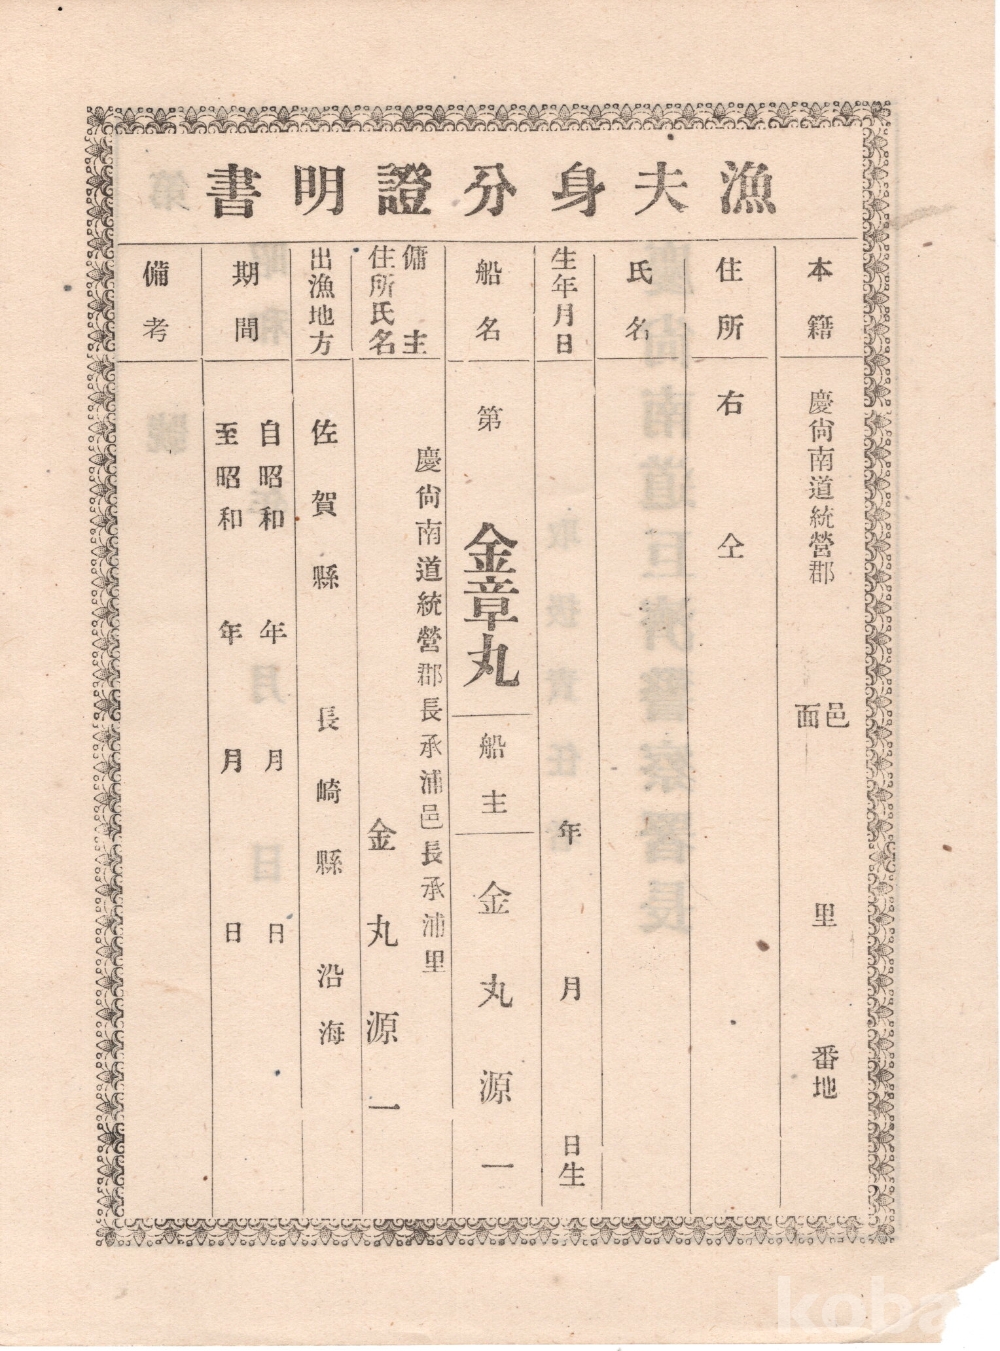 漁夫身分證明書
本籍
慶尙南道統營郡
邑
面
里
番地
住所
右仝
氏名
生年月日
年 月 日生
船名
第 金章丸
船主
金丸源一
傭主
住所氏名
慶尙南道統營郡長承浦邑長承浦里
金丸源一
出漁地方
佐賀縣 長崎縣 沿海
期間
自昭和 年 月 日
至昭和 年 月 日
備考
慶尙南道巨濟警察署長
取扱責任者
昭和 年 月 日
第 號
koba